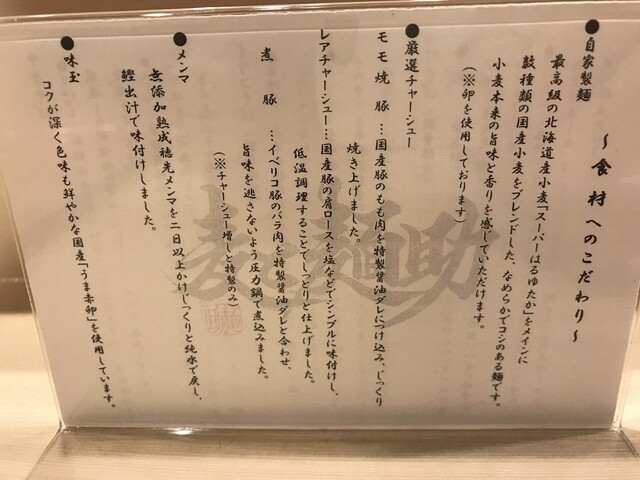 ～食材へのこだわり～
●自家製麺
最高級の北海道産小麦「スーパーはるゆたか」をメインに
数種類の国産小麦をブレンドした、なめらかでコシのある麺です。
小麦本来の旨味と香りを感じていただけます。
（※卵を使用しております）
●厳選チャーシュー
モモ焼豚…国産豚のもも肉を特製醤油ダレにつけ込み、じっくり
焼き上げました。
レアチャーシュー…国産豚の肩ロースを塩などでシンプルに味付けし、
低温調理することでしっとりと仕上げました。
煮豚…イベリコ豚のバラ肉を特製醤油ダレと合わせ、
旨味を逃さないよう圧力鍋で煮込みました。
（※チャーシュー増しと特製のみ）
●メンマ
無添加熟成穂先メンマを二日以上かけじっくりと純水で戻し、
鰹出汁で味付けしました。
●味玉
コクが深く色味も鮮やかな国産「うま赤卵」を使用しています。
麦麺助